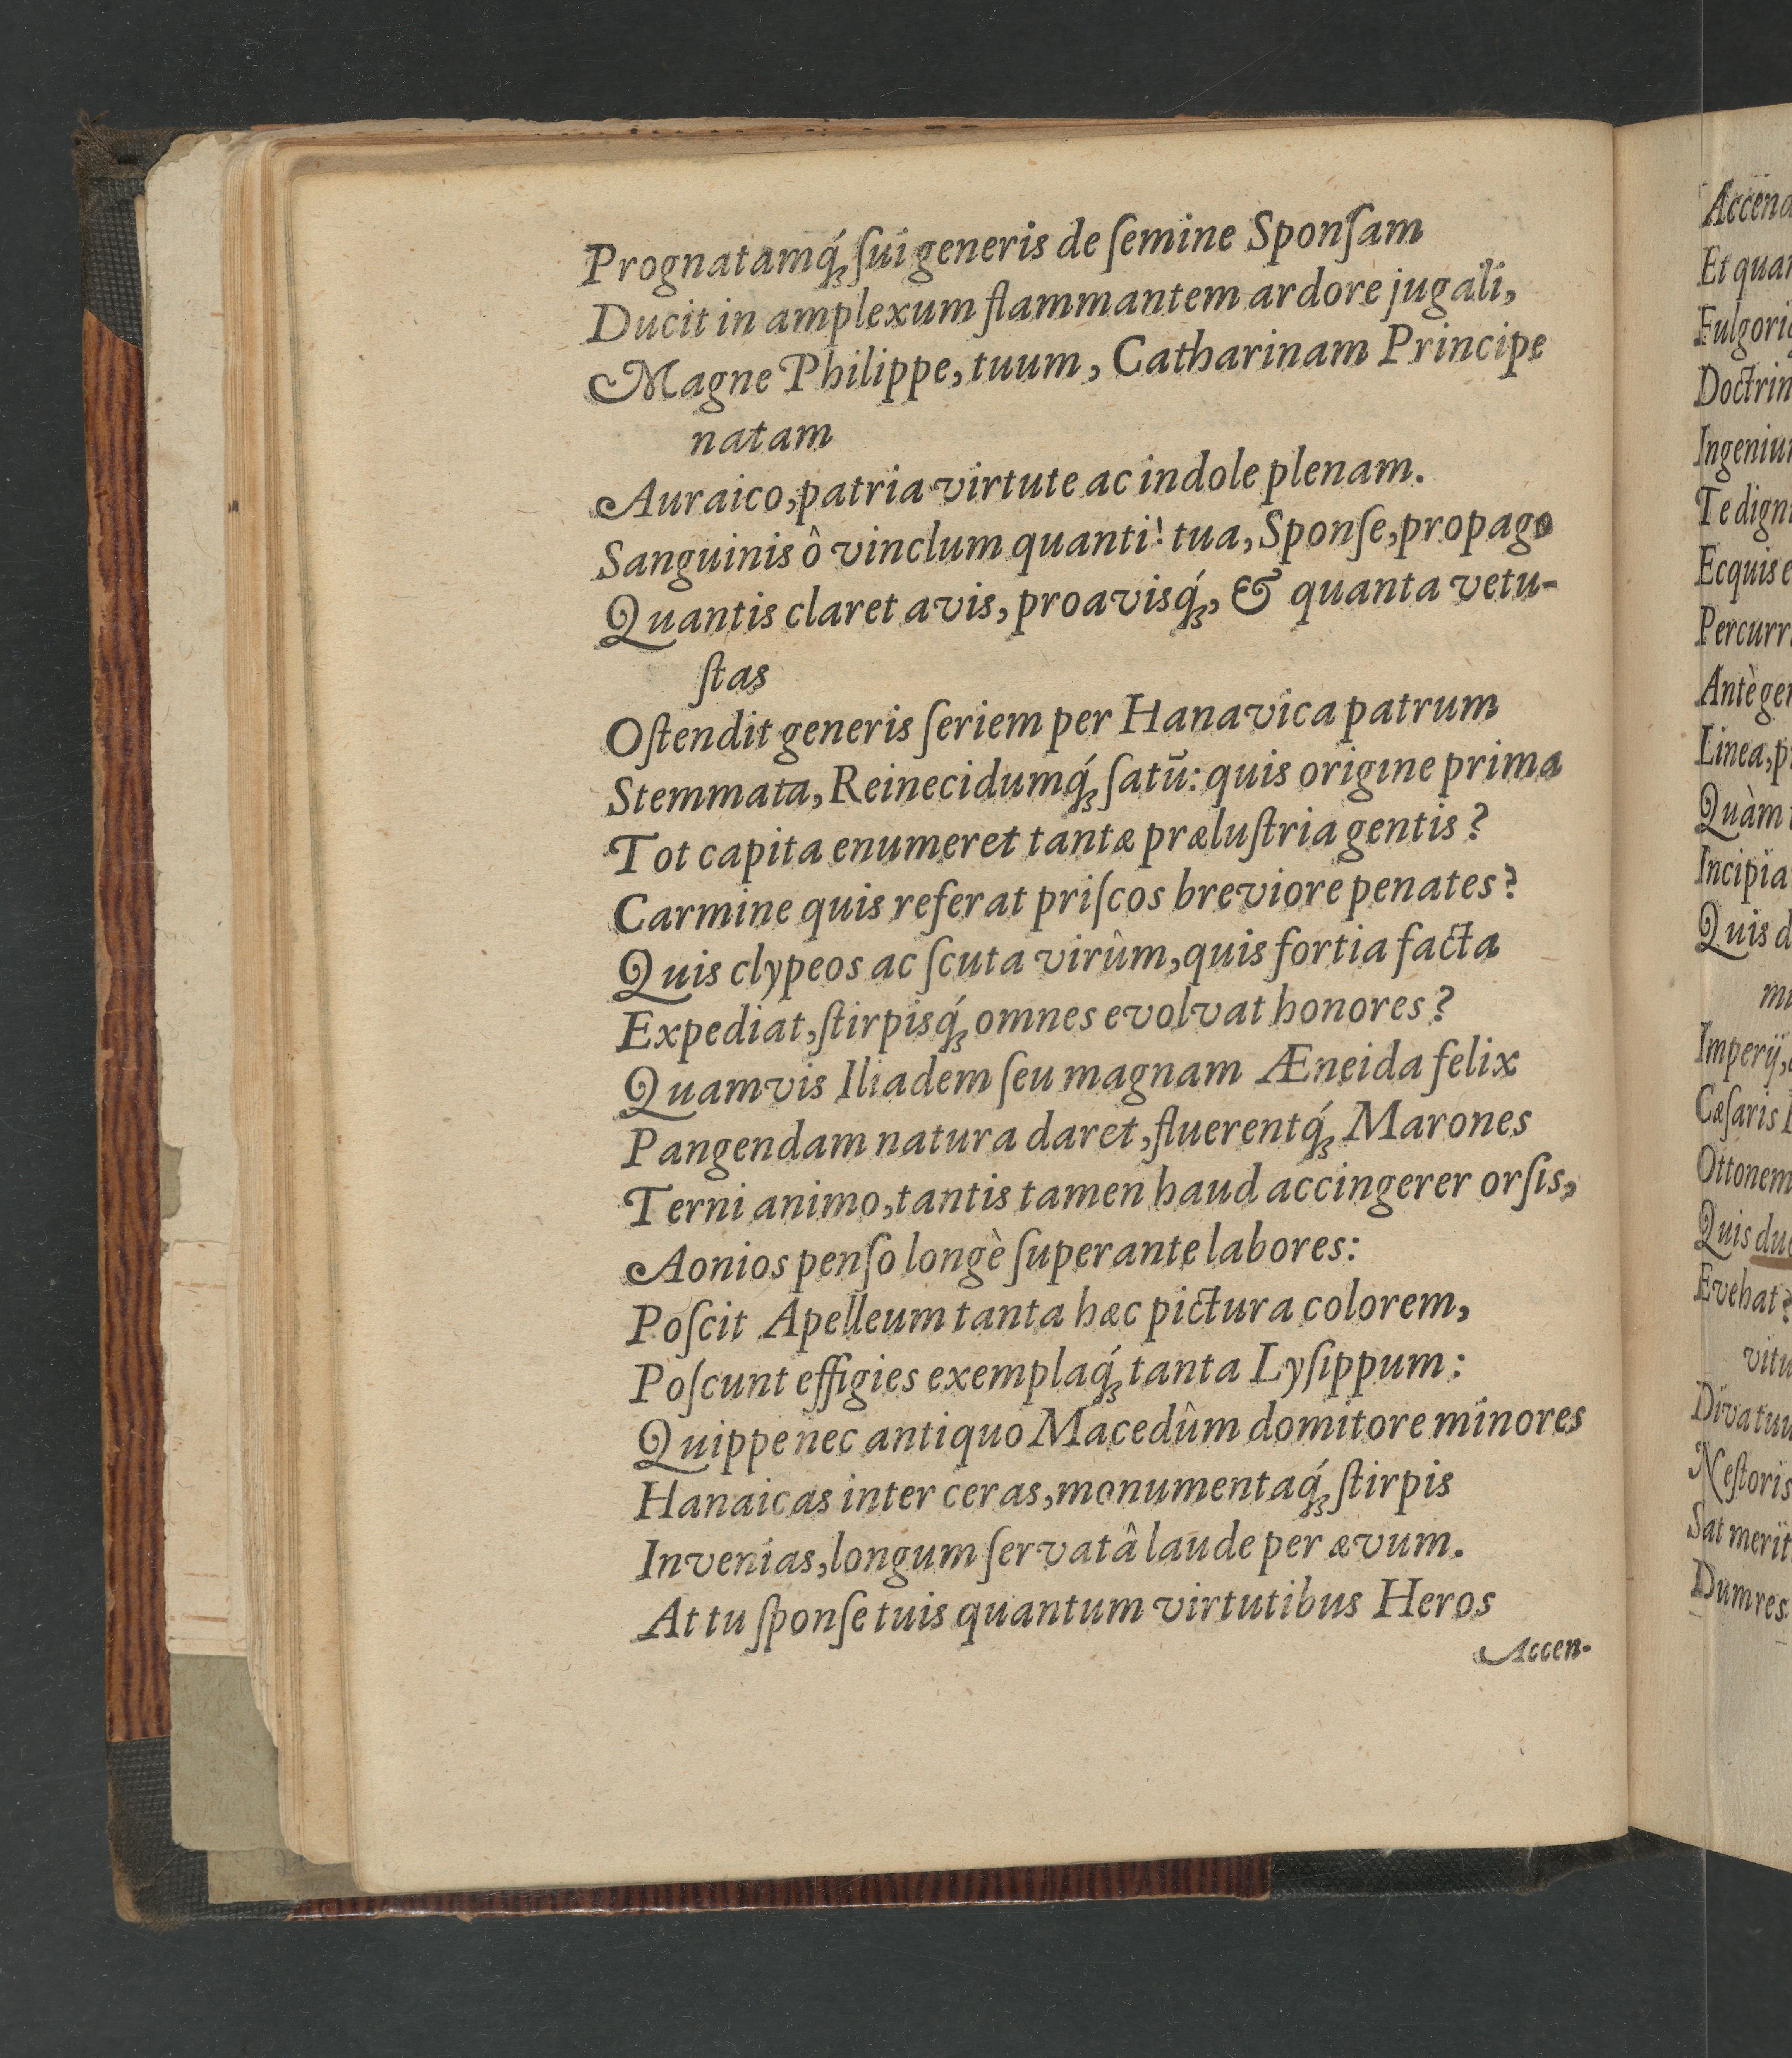 Prognatamq́; ſui generis de ſemine Sponſam
Ducit in amplexum flammantem ardore jugali,
Magne Philippe, tuum, Catharinam Principe
natam
Auraico, patria virtute ac indole plenam.
Sanguinis ô vinclum quanti! tua, Sponſe, propago
Quantis claret avis, proavisq́;, & quanta vetu-
ſtas
Oſtendit generis ſeriem per Hanavica patrum
Stemmata, Reinecidumq́; ſatū: quis origine prima
Tot capita enumeret tantæ præluſtria gentis?
Carmine quis referat priſcos breviore penates?
Quis clypeos ac ſcuta virûm, quis fortia facta
Expediat, ſtirpisq́; omnes evolvat honores?
Quamvis Iliadem ſeu magnam Æneida felix
Pangendam natura daret, fluerentq́; Marones
Terni animo, tantis tamen haud accingerer orſis,
Aonios penſo longè ſuperante labores:
Poſcit Apelleum tanta hæc pictura colorem,
Poſcunt effigies exemplaq́; tanta Lyſippum:
Quippe nec antiquo Macedûm domitore minores
Hanaicas inter ceras, monumentaq́; ſtirpis
Invenias, longum ſervatâ laude per ævum.
At tu ſponſe tuis quantum virtutibus Heros
Accen-
Et
Te
Quàm
Quis
Imperij,
Cæſaris
Ottonem
Quis
Evehat?
Neſtoris
Sat